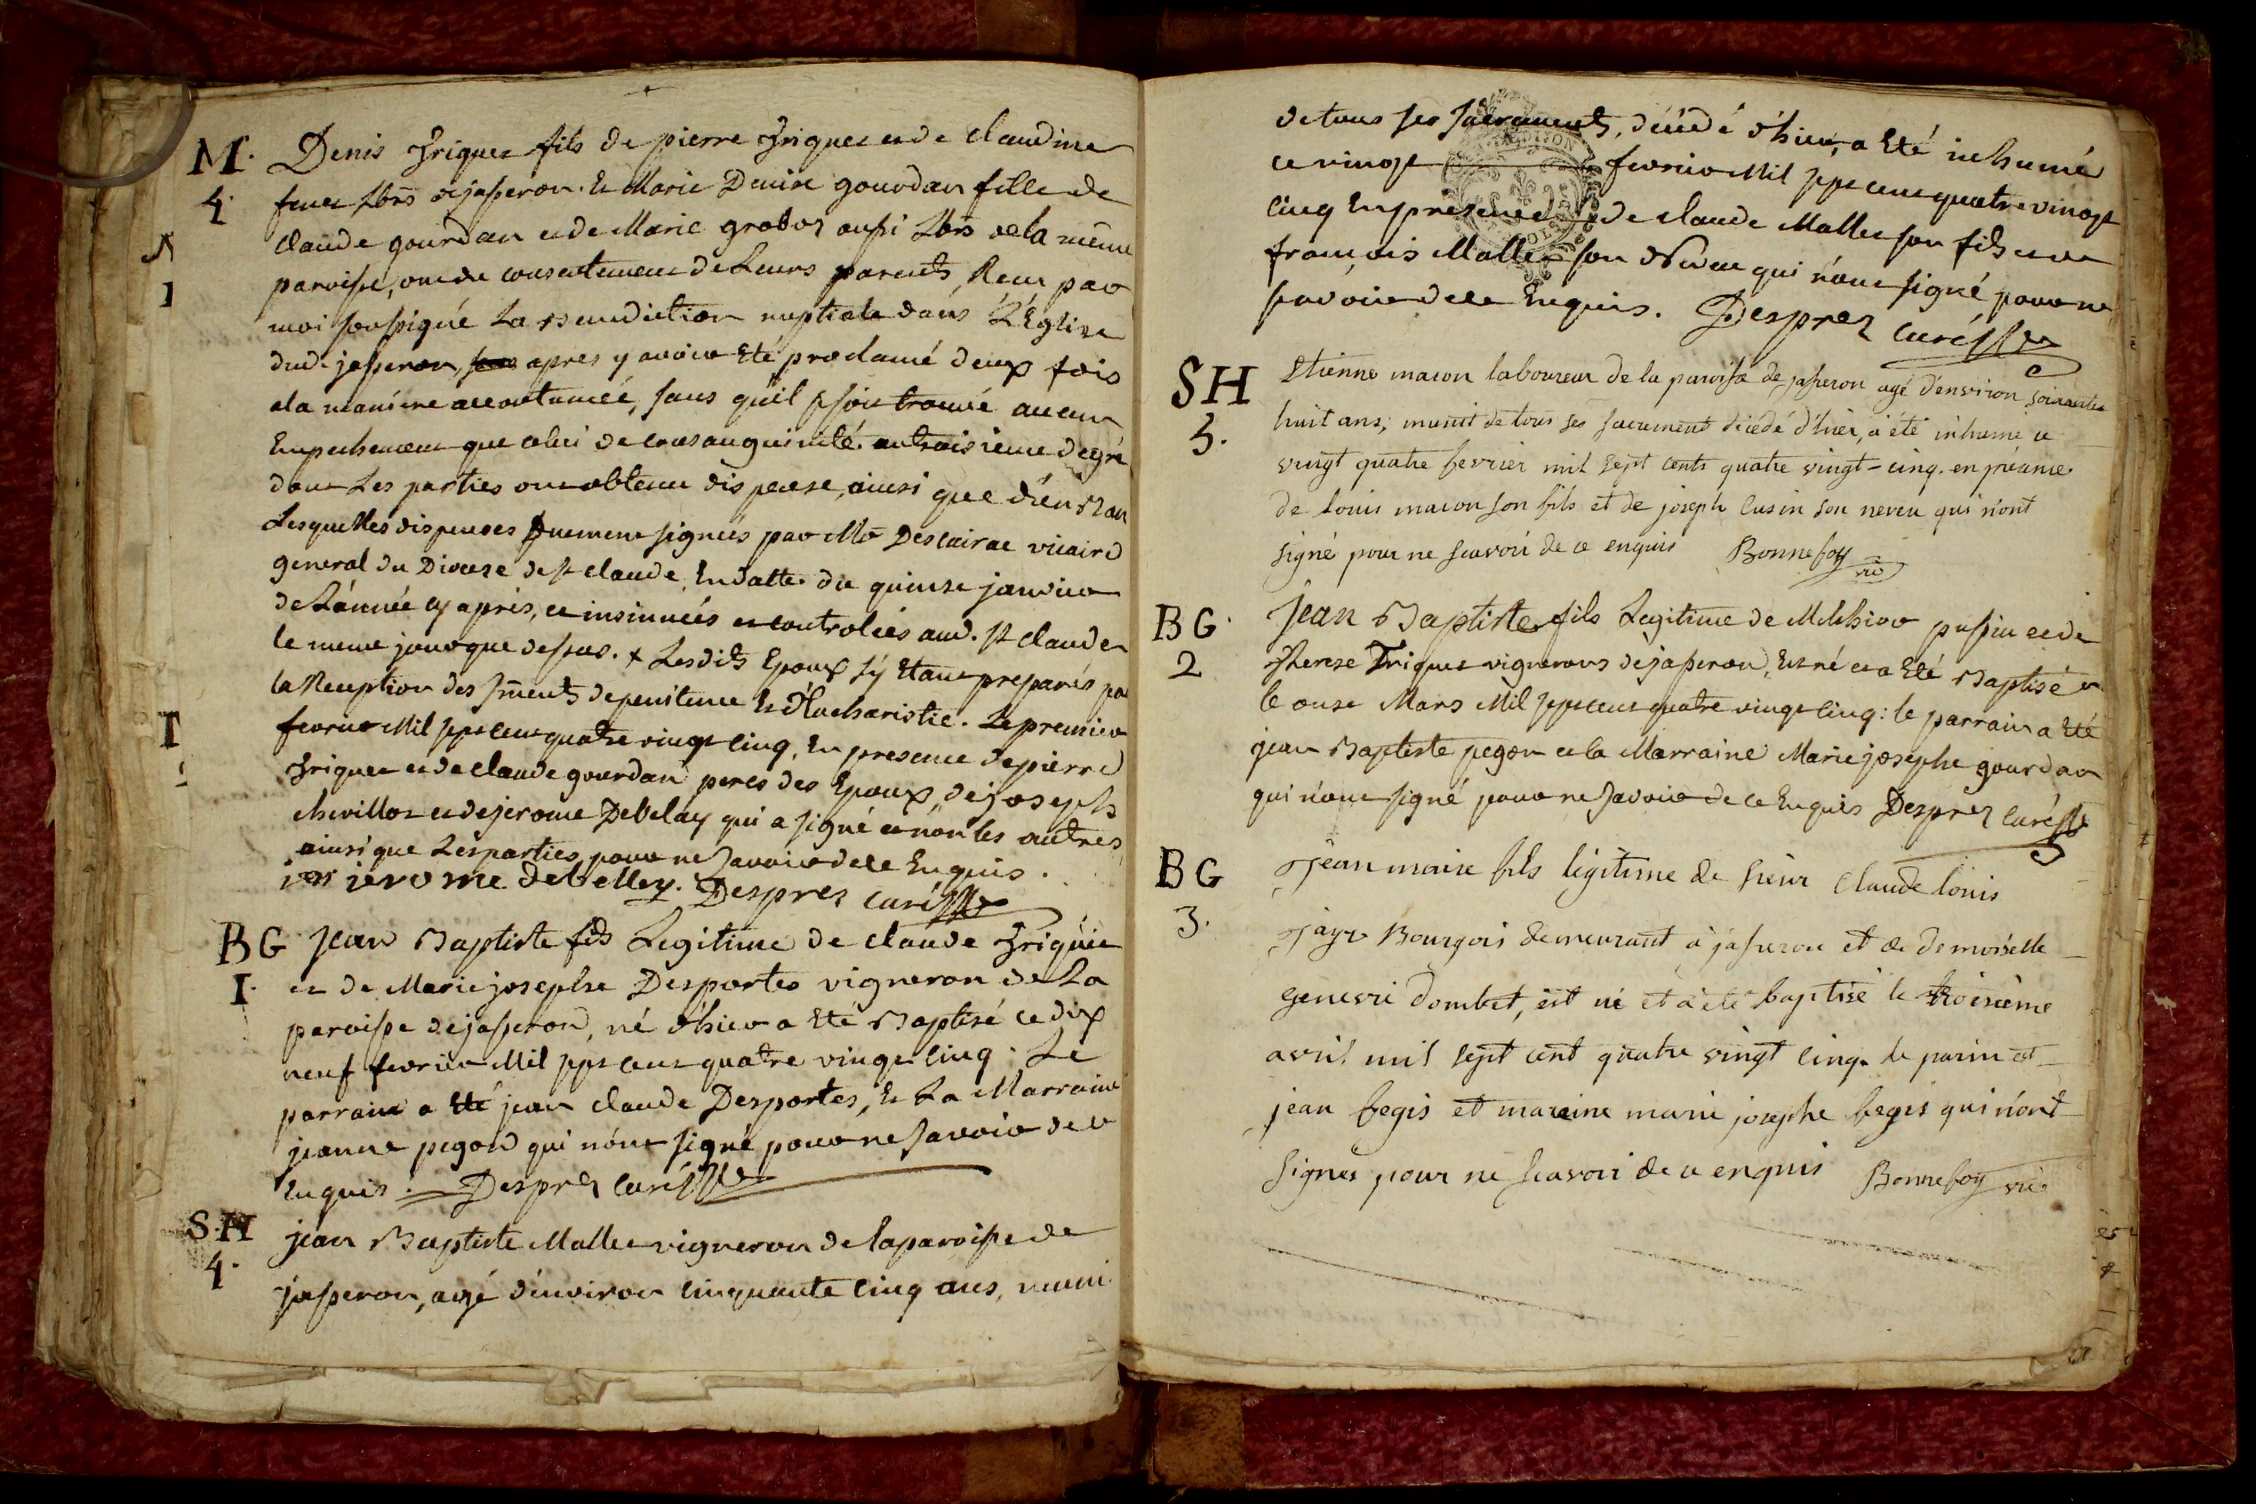 M. Denis Friquet fils de pierre Friquet et de claudine
4. feuet Lbrs de jasseron. Et Marie Denise gourdan fille de
claude gourdan et de Marie groboz aussi Lbrs de la même
paroisse, ont du consentement de Leurs parents, Recu par
1 moi soussigné La Benediction nuptiale dans L'Eglise
dud. jasseron, apres y avoir Eté proclamé deux fois
a la maniere accoutumée, sans qu'il se soit trouvé aucun
Empechement que celui de consanguinité au troisieme degré
dont Les parties ont obtenu dispense, ainsi que d'un Ban
Lesquelles dispenses duement signées par Mr Descairac vicaire
general du Diocese de st claude, En datte du quinze janvier
de L'année cy après, et insinuées et controlées aud. st claude
le meme jour que dessus. + Lesdits Epoux s'y Etant preparés par
la Reception des sments de penitence Et d'Eucharistie. Le premier
fevrier Mil sept cent quatre vingt cinq, En presence de pierre
friquet et de claude gourdan peres des Epoux, de joseph
chevillot et de jerome Debelay qui a signé et non les autres
ainsi que Les parties, pour ne savoir de ce Enquis.
jerome debelley. Desprez curé
BG Jean Baptiste fils Legitime de claude Friquet
I. et de Marie josephe Desportes vigneron de La
paroisse de jasseron, né d'hier a Eté Baptisé ce dix
neuf fevrier Mil sept cent quatre vingt cinq. Le
parrain a Eté jean claude Desportes, Et La Marraine
jeanne pegon qui n'ont signé pour ne savoir de ce
Enquis. Desprez curé
S.H jean Baptiste Mallet vigneron de la paroisse de
4. jasseron, agé d'environ cinquante cinq ans, muni
de tous ses sacrements, décédé d'hier, a Eté inhumé
ce vingt fevrier Mil sept cent quatre vingt
cinq En presence de claude Mallet son fils et de
françois Mallet son neveu qui n'ont signé pour ne
savoir de ce Enquis. Desprez curé
SH Etienne maron laboureur de la paroisse de jasseron agé d'environ soixante
5. huit ans, munit de tous ses sacrement décédé d'hier, a été inhumé ce
vingt quatre fevrier mil sept cents quatre vingt-cinq. en présance
de louis maron son fils et de joseph cusin son neveu qui n'ont
signé pour ne scavoir de ce enquis Bonnefoy vic
BG. Jean Baptiste fils Legitime de Melchior pussin et de
2 Therese Friquet vignerons de jasseron, Est né et a Eté Baptisé
le onze Mars Mil sept cent quatre vingt cinq: le parrain a Eté
jean Baptiste pegon et la Marraine Marie josephe gourdan
qui n'ont signé pour ne savoir de ce Enquis Desprez curé
BG Jean marie fils légitime de sieur Claude louis
3. Jayr Bourgois demeurant a jasseron et de demoiselle
dombet, est né et a été baptisé le troisième
avril mil sept cent quatre vingt cinq. le parin est
jean begis et maraine marie josephe begis qui n'ont
signés pour ne scavoir de ce enquis Bonnefoy vic